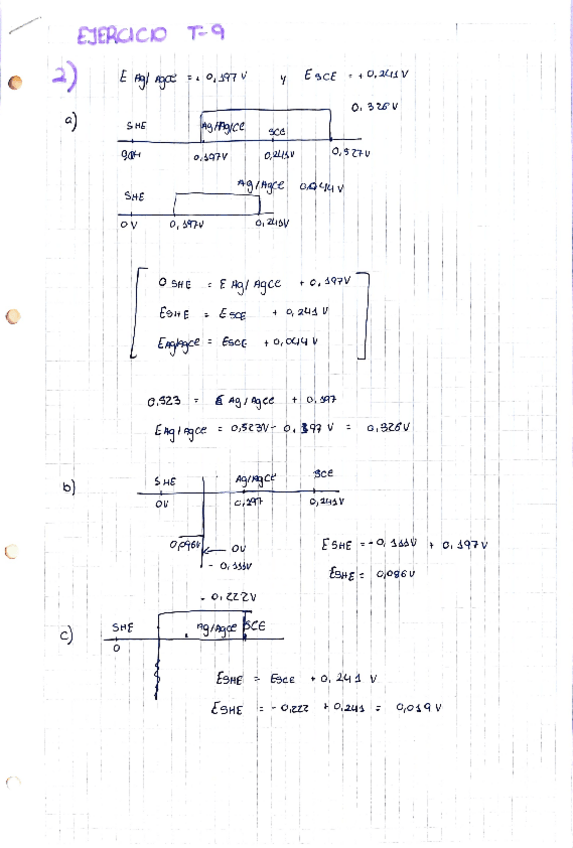 EJERCICIO T-9
2) E Ag/AgCl = + 0,197 V y E SCE = + 0,241 V
a) 0,326V
SHE Ag/AgCl SCE
0,197V 0,241V 0,527V
Ag/AgCl 0,044V
SHE
0V 0,197V 0,241V
0 SHE = E Ag/AgCl + 0,197V
ESHE = ESCE + 0,241 V
EAg/AgCl = ESCE + 0,044 V
0,523 = E Ag/AgCl + 0,197
EAg/AgCl = 0,523V - 0,197 V = 0,326V
b) SHE Ag/AgCl SCE
0V 0,197 0,241V
0,086V ← 0V
- 0,111V
ESHE = -0,111V + 0,197V
ESHE = 0,086V
- 0,222V
c) SHE Ag/AgCl SCE
0
ESHE = ESCE + 0,241 V
ESHE = -0,222 + 0,241 = 0,019V